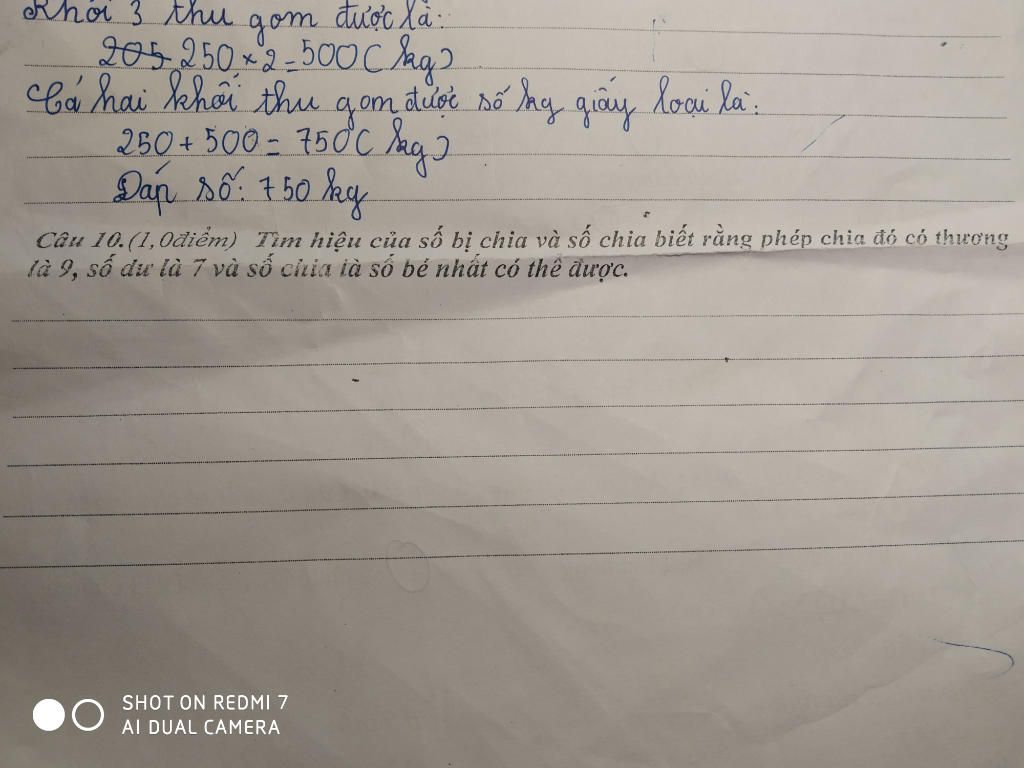 Khối 3 thu gom được là:
205 250 × 2 = 500 ( kg )
Cả hai khối thu gom được số kg giấy loại là:
250 + 500 = 750 ( kg )
Đáp số: 750 kg
Câu 10.(1,0điểm) Tìm hiệu của số bị chia và số chia biết rằng phép chia đó có thương
là 9, số dư là 7 và số chia là số bé nhất có thể được.
SHOT ON REDMI 7
AI DUAL CAMERA